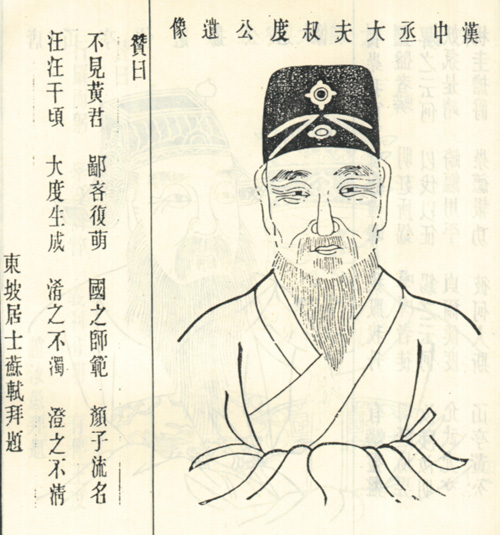 漢中丞大夫叔度公遺像
贊曰
不見黃君 鄙吝復萌 國之師範 顏子流名
汪汪千頃 大度生成 淆之不濁 澄之不清
東坡居士蘇軾拜題